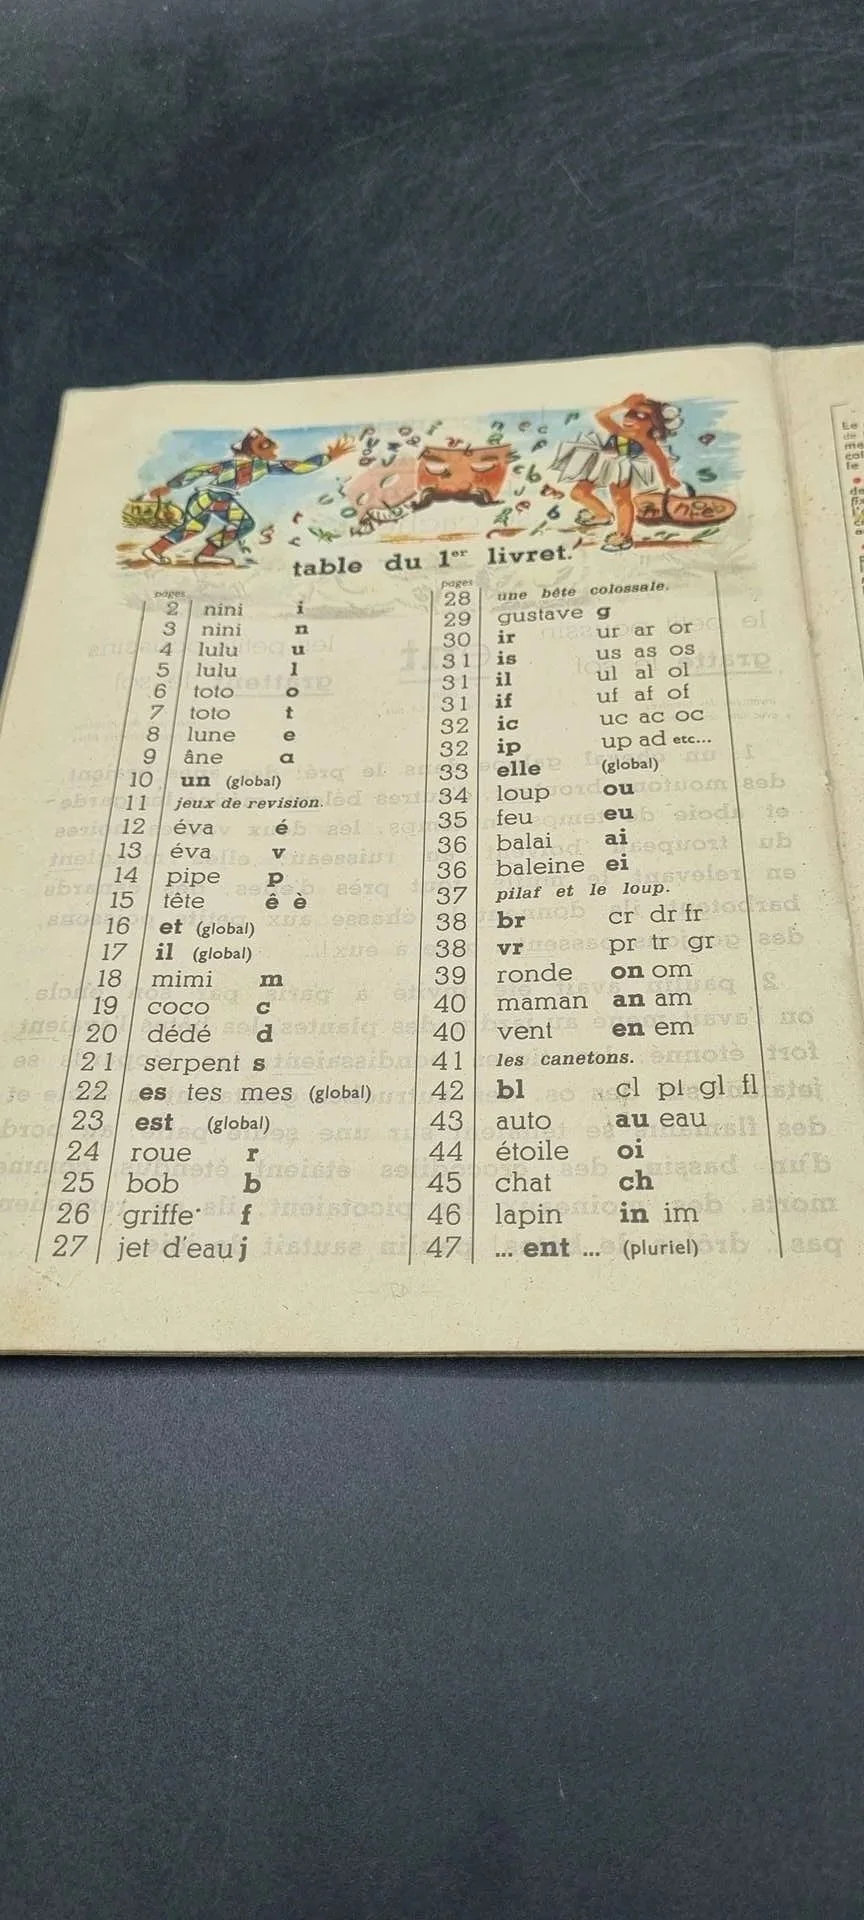 table du 1er livret.
pages
2 nini i
3 nini n
4 lulu u
5 lulu l
6 toto o
7 toto t
8 lune e
9 âne a
10 un (global)
11 jeux de revision.
12 éva é
13 éva v
14 pipe p
15 tête ê è
16 et (global)
17 il (global)
18 mimi m
19 coco c
20 dédé d
21 serpent s
22 es tes mes (global)
23 est (global)
24 roue r
25 bob b
26 griffe f
27 jet d'eau j
pages
28 une bête colossale.
29 gustave g
30 ir ur ar or
31 is us as os
31 il ul al ol
31 if uf af of
32 ic uc ac oc
32 ip up ad etc...
33 elle (global)
34 loup ou
35 feu eu
36 balai ai
36 baleine ei
37 pilaf et le loup.
38 br cr dr fr
38 vr pr tr gr
39 ronde on om
40 maman an am
40 vent en em
41 les canetons.
42 bl cl pl gl fl
43 auto au eau
44 étoile oi
45 chat ch
46 lapin in im
47 ... ent ... (pluriel)